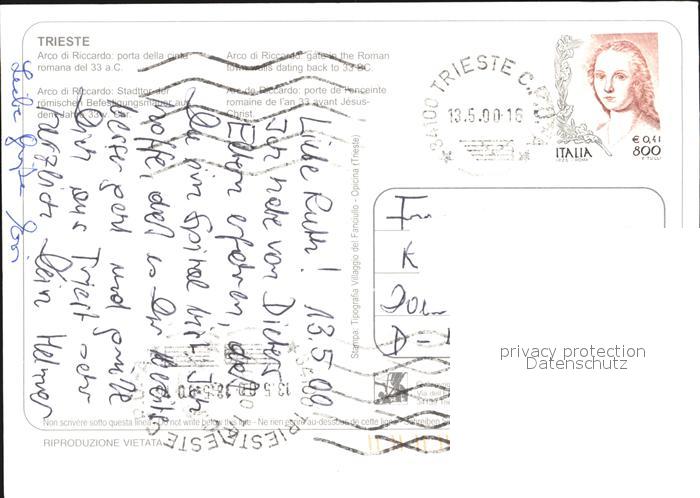 TRIESTE
Arco di Riccardo: porta della cinta
romana del 33 a.C.
Arco di Riccardo: gate in the Roman
town walls dating back to 33 BC.
Arco di Riccardo: Stadttor der
römischen Befestigungsmauer aus
dem Jahre 33 v. Chr.
Arc de Riccardo: porte de l'enceinte
romaine de l'an 33 avant Jésus-
Christ
34100 TRIESTE C.P.
13.5.00-16
€ 0,41
800
ITALIA
Stampa: Tipografia Villaggio del Fanciullo - Opicina (Trieste)
Liebe Ruth! 13.5.00
Ich habe von Dieters
Eltern erfahren, daß
Du im Spital bist. Ich
hoffe, daß es Dir bereits
besser geht und grüße
Dich aus Triest sehr
herzlich Dein Helmar
Liebe Grüße
K
A-
privacy protection
Datenschutz
Non scrivere sotto questa linea - Do not write below this line - Ne rien écrire au-dessous de cette ligne
RIPRODUZIONE VIETATA
TRIESTE